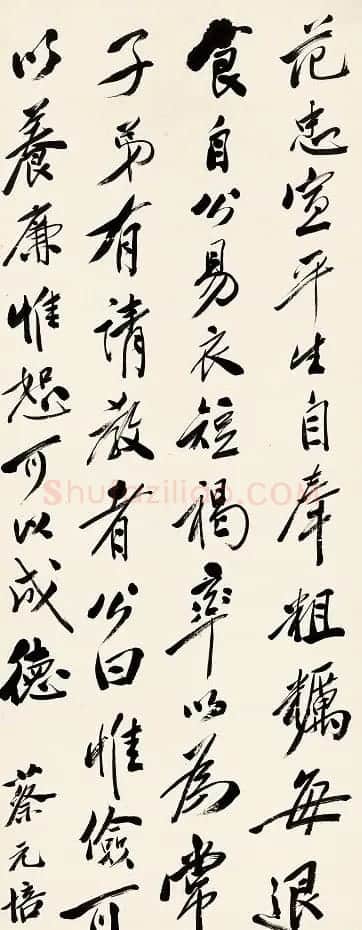 范忠宣平生自奉粗糲每退
食自公易衣短褐率以為常
子弟有請教者公曰惟儉可
以養廉惟恕可以成德
蔡元培
Shufaziliao.COM